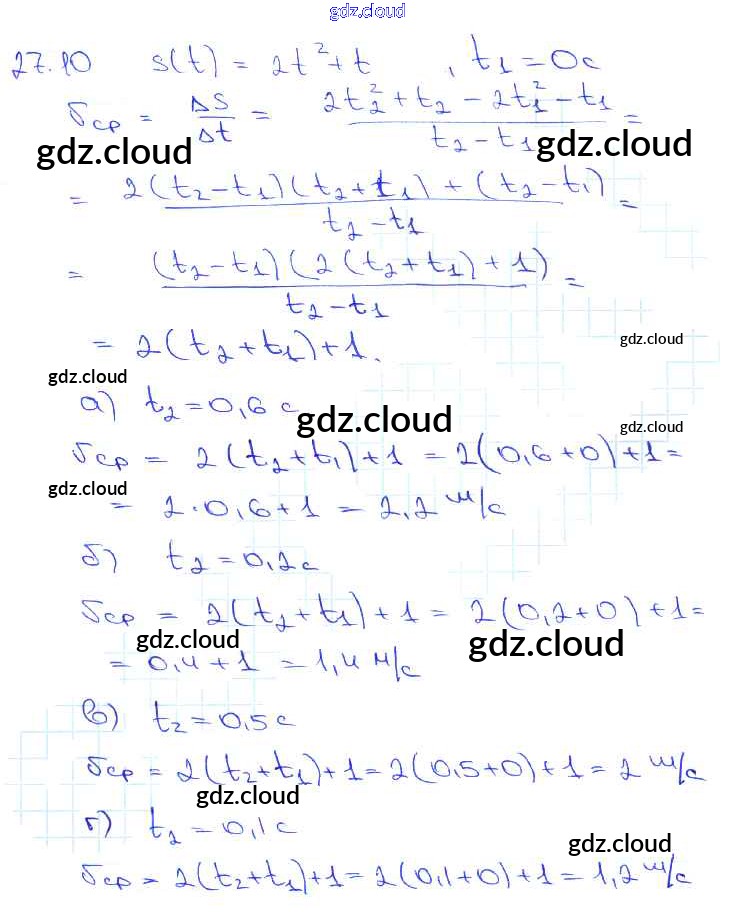 gdz.cloud
27.10 s(t) = 2t² + t , t₁ = 0c
υcp = Δs/Δt = (2t₂² + t₂ - 2t₁² - t₁)/(t₂ - t₁) =
gdz.cloud gdz.cloud
= (2(t₂ - t₁)(t₂ + t₁) + (t₂ - t₁))/(t₂ - t₁) =
= ((t₂ - t₁)(2(t₂ + t₁) + 1))/(t₂ - t₁) =
= 2(t₂ + t₁) + 1.
gdz.cloud
gdz.cloud
а) t₂ = 0,6 c
gdz.cloud
gdz.cloud
υcp = 2(t₂ + t₁) + 1 = 2(0,6 + 0) + 1 =
gdz.cloud
= 2·0,6 + 1 = 2,2 м/с
б) t₂ = 0,2c
υcp = 2(t₂ + t₁) + 1 = 2(0,2 + 0) + 1 =
gdz.cloud gdz.cloud
= 0,4 + 1 = 1,4 м/с
в) t₂ = 0,5 c
υcp = 2(t₂ + t₁) + 1 = 2(0,5 + 0) + 1 = 2 м/с
gdz.cloud
г) t₂ = 0,1 c
gdz.cloud
υcp = 2(t₂ + t₁) + 1 = 2(0,1 + 0) + 1 = 1,2 м/с